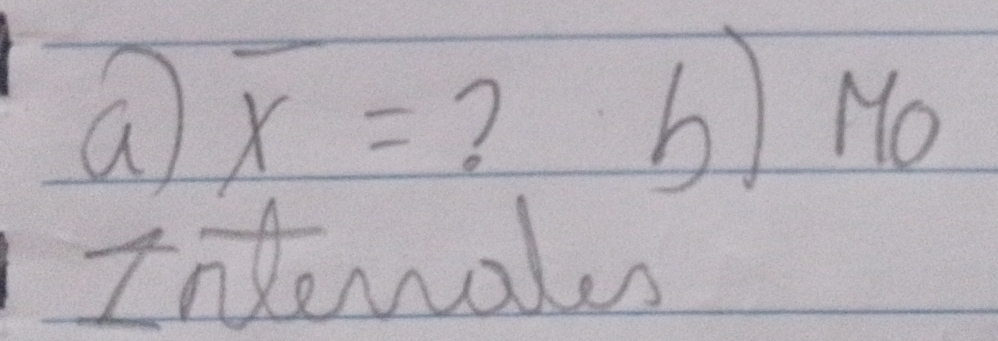 a) x̄ = ? b) Mo
Intervalos